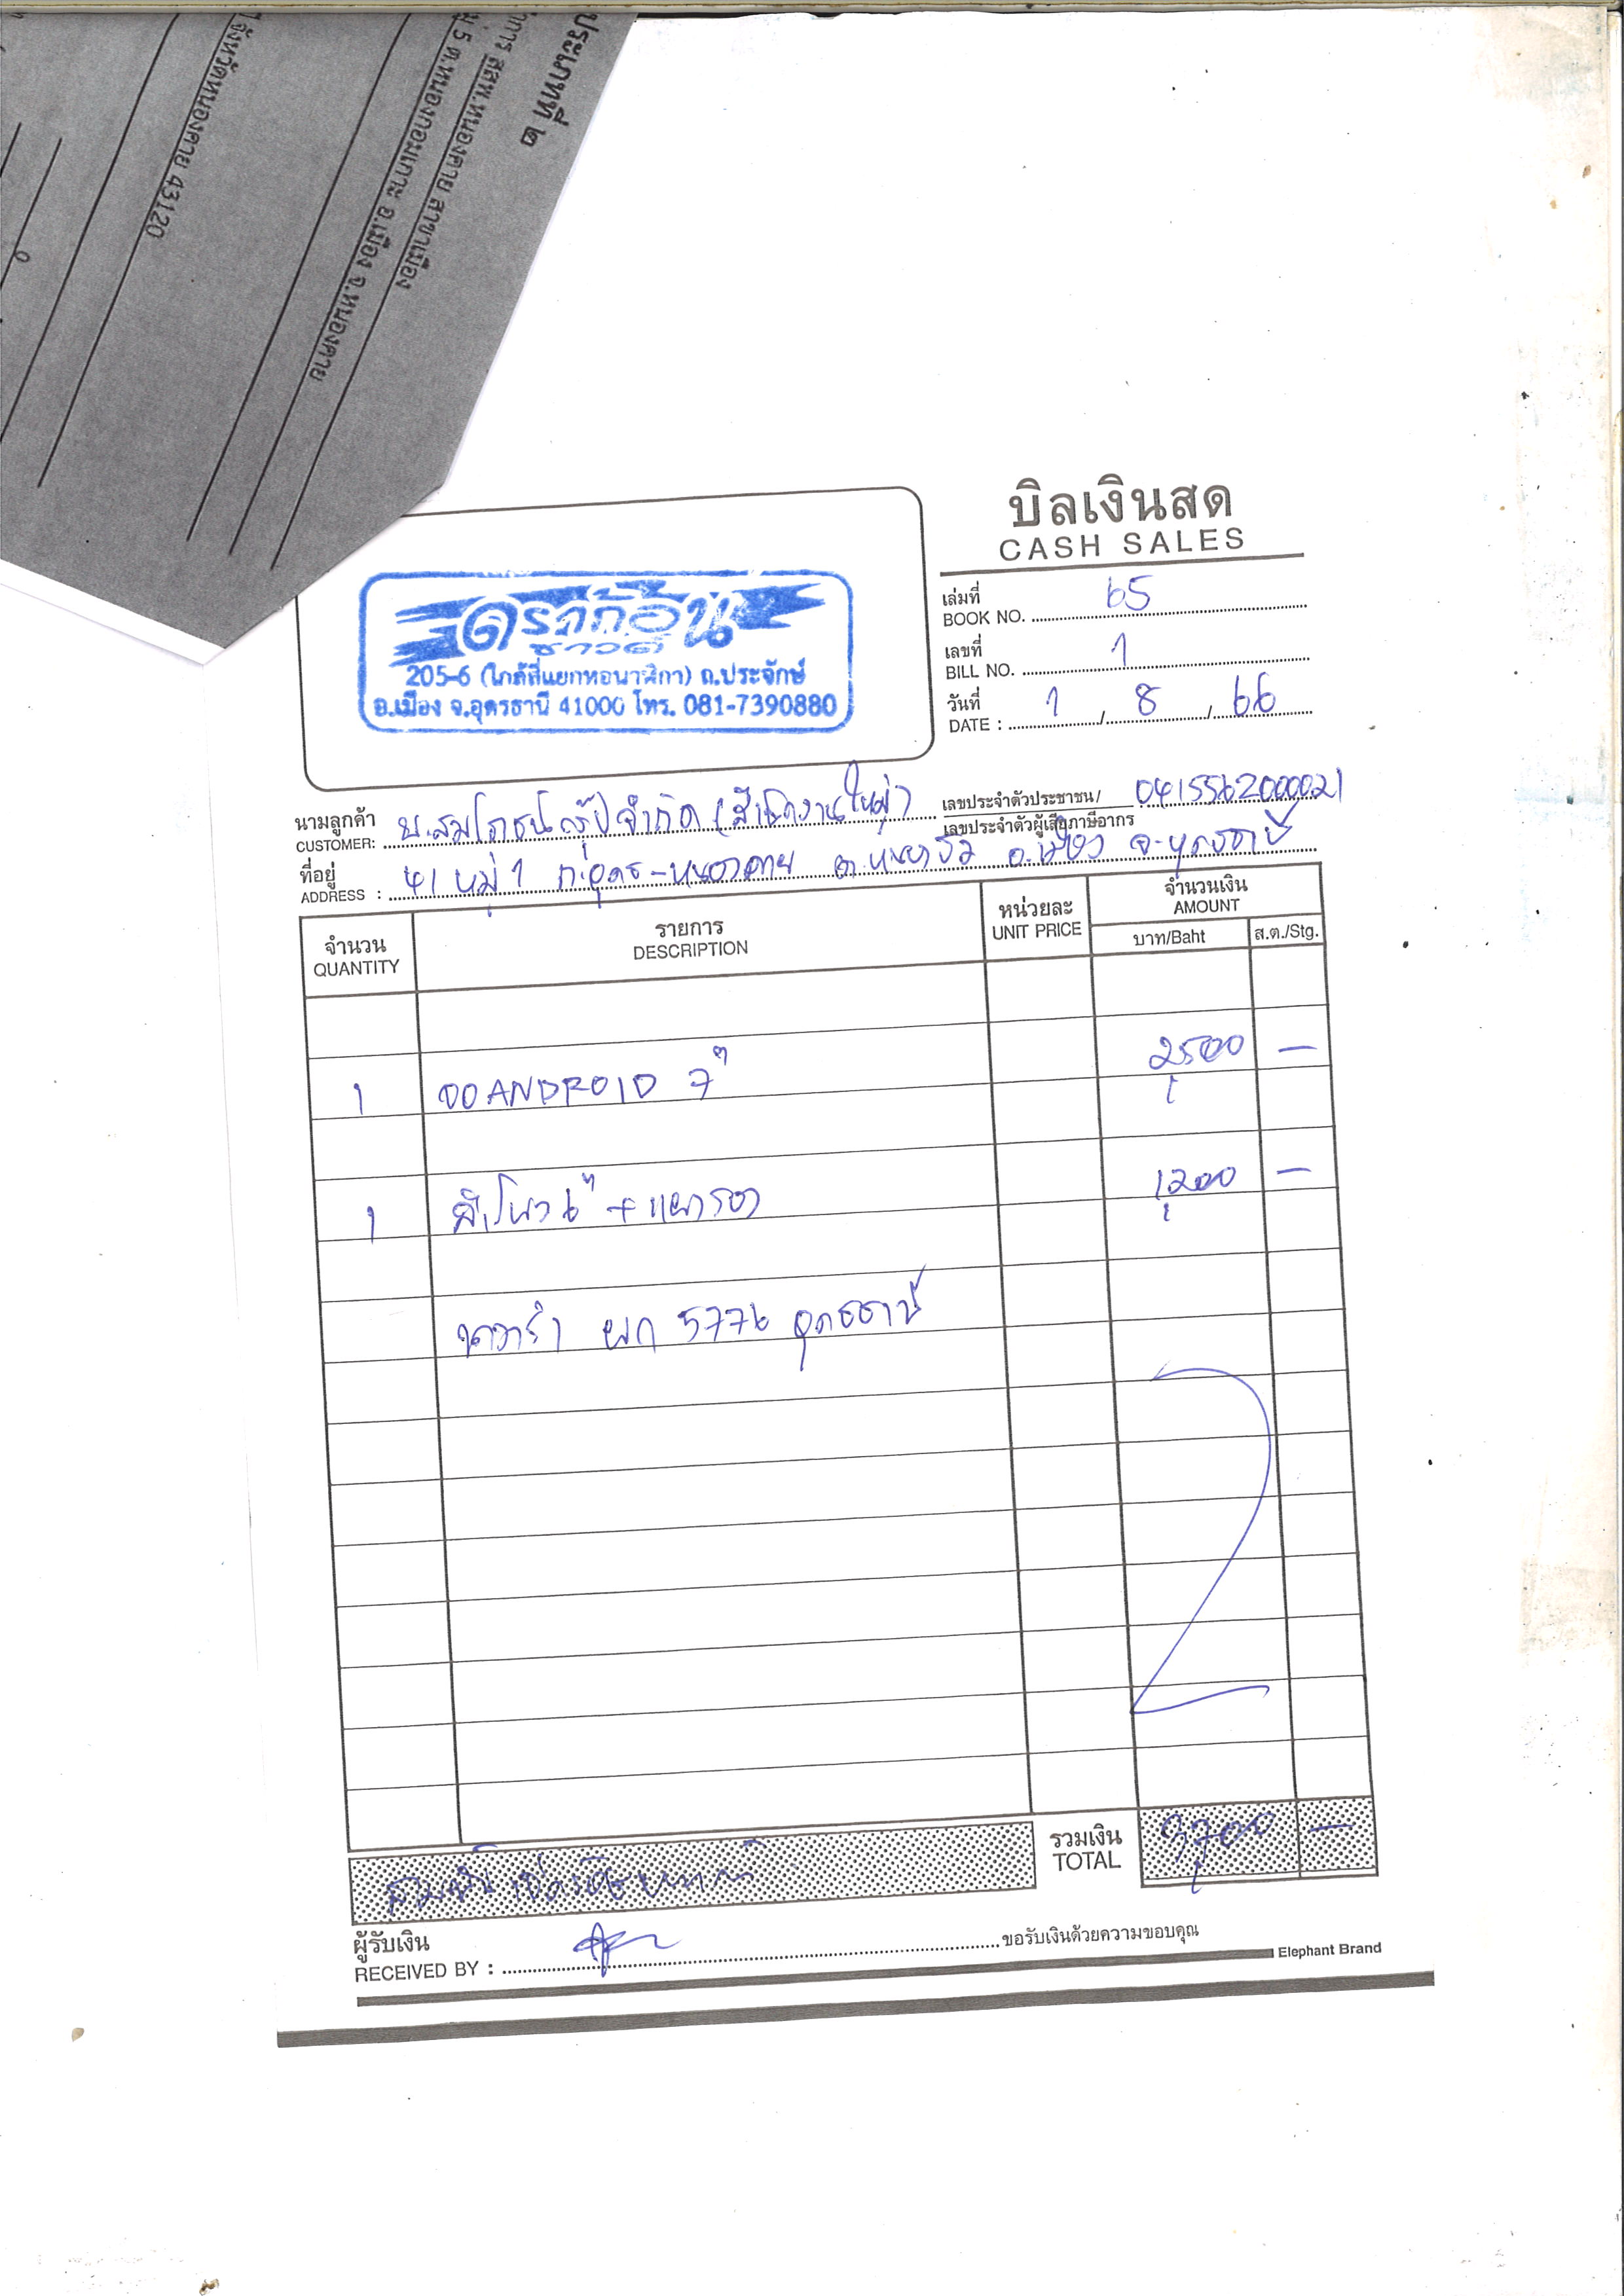 ประเภทที่ ๒
ำการ สสพ.หนองคาย สาขาเมือง
5 ต.หนองกอมเกาะ อ.เมือง จ.หนองคาย
จังหวัดหนองคาย 43120
บิลเงินสด
CASH SALES
ดราก้อน
ซาวด์
205-6 (ใกล้สี่แยกหอนาฬิกา) ถ.ประจักษ์
อ.เมือง จ.อุดรธานี 41000 โทร. 081-7390880
เล่มที่
BOOK NO. 65
เลขที่
BILL NO. 1
วันที่
DATE : 1 / 8 / 66
นามลูกค้า
CUSTOMER: บ.สมโภชน์กรุ๊ป จำกัด (สำนักงานใหญ่) เลขประจำตัวประชาชน/ 0415562000021
เลขประจำตัวผู้เสียภาษีอากร
ที่อยู่
ADDRESS : 41 หมู่ 1 ถ.อุดร-หนองคาย ต.หมากแข้ง อ.เมือง จ.อุดรธานี
จำนวน รายการ หน่วยละ จำนวนเงิน
QUANTITY DESCRIPTION UNIT PRICE AMOUNT
บาท/Baht ส.ต./Stg.
1 จอ ANDROID 7" 2500 —
1 ลำโพง 6" + 1200 —
5776 อุดรธานี
รวมเงิน
TOTAL 3700 —
ผู้รับเงิน
RECEIVED BY : ขอรับเงินด้วยความขอบคุณ
Elephant Brand